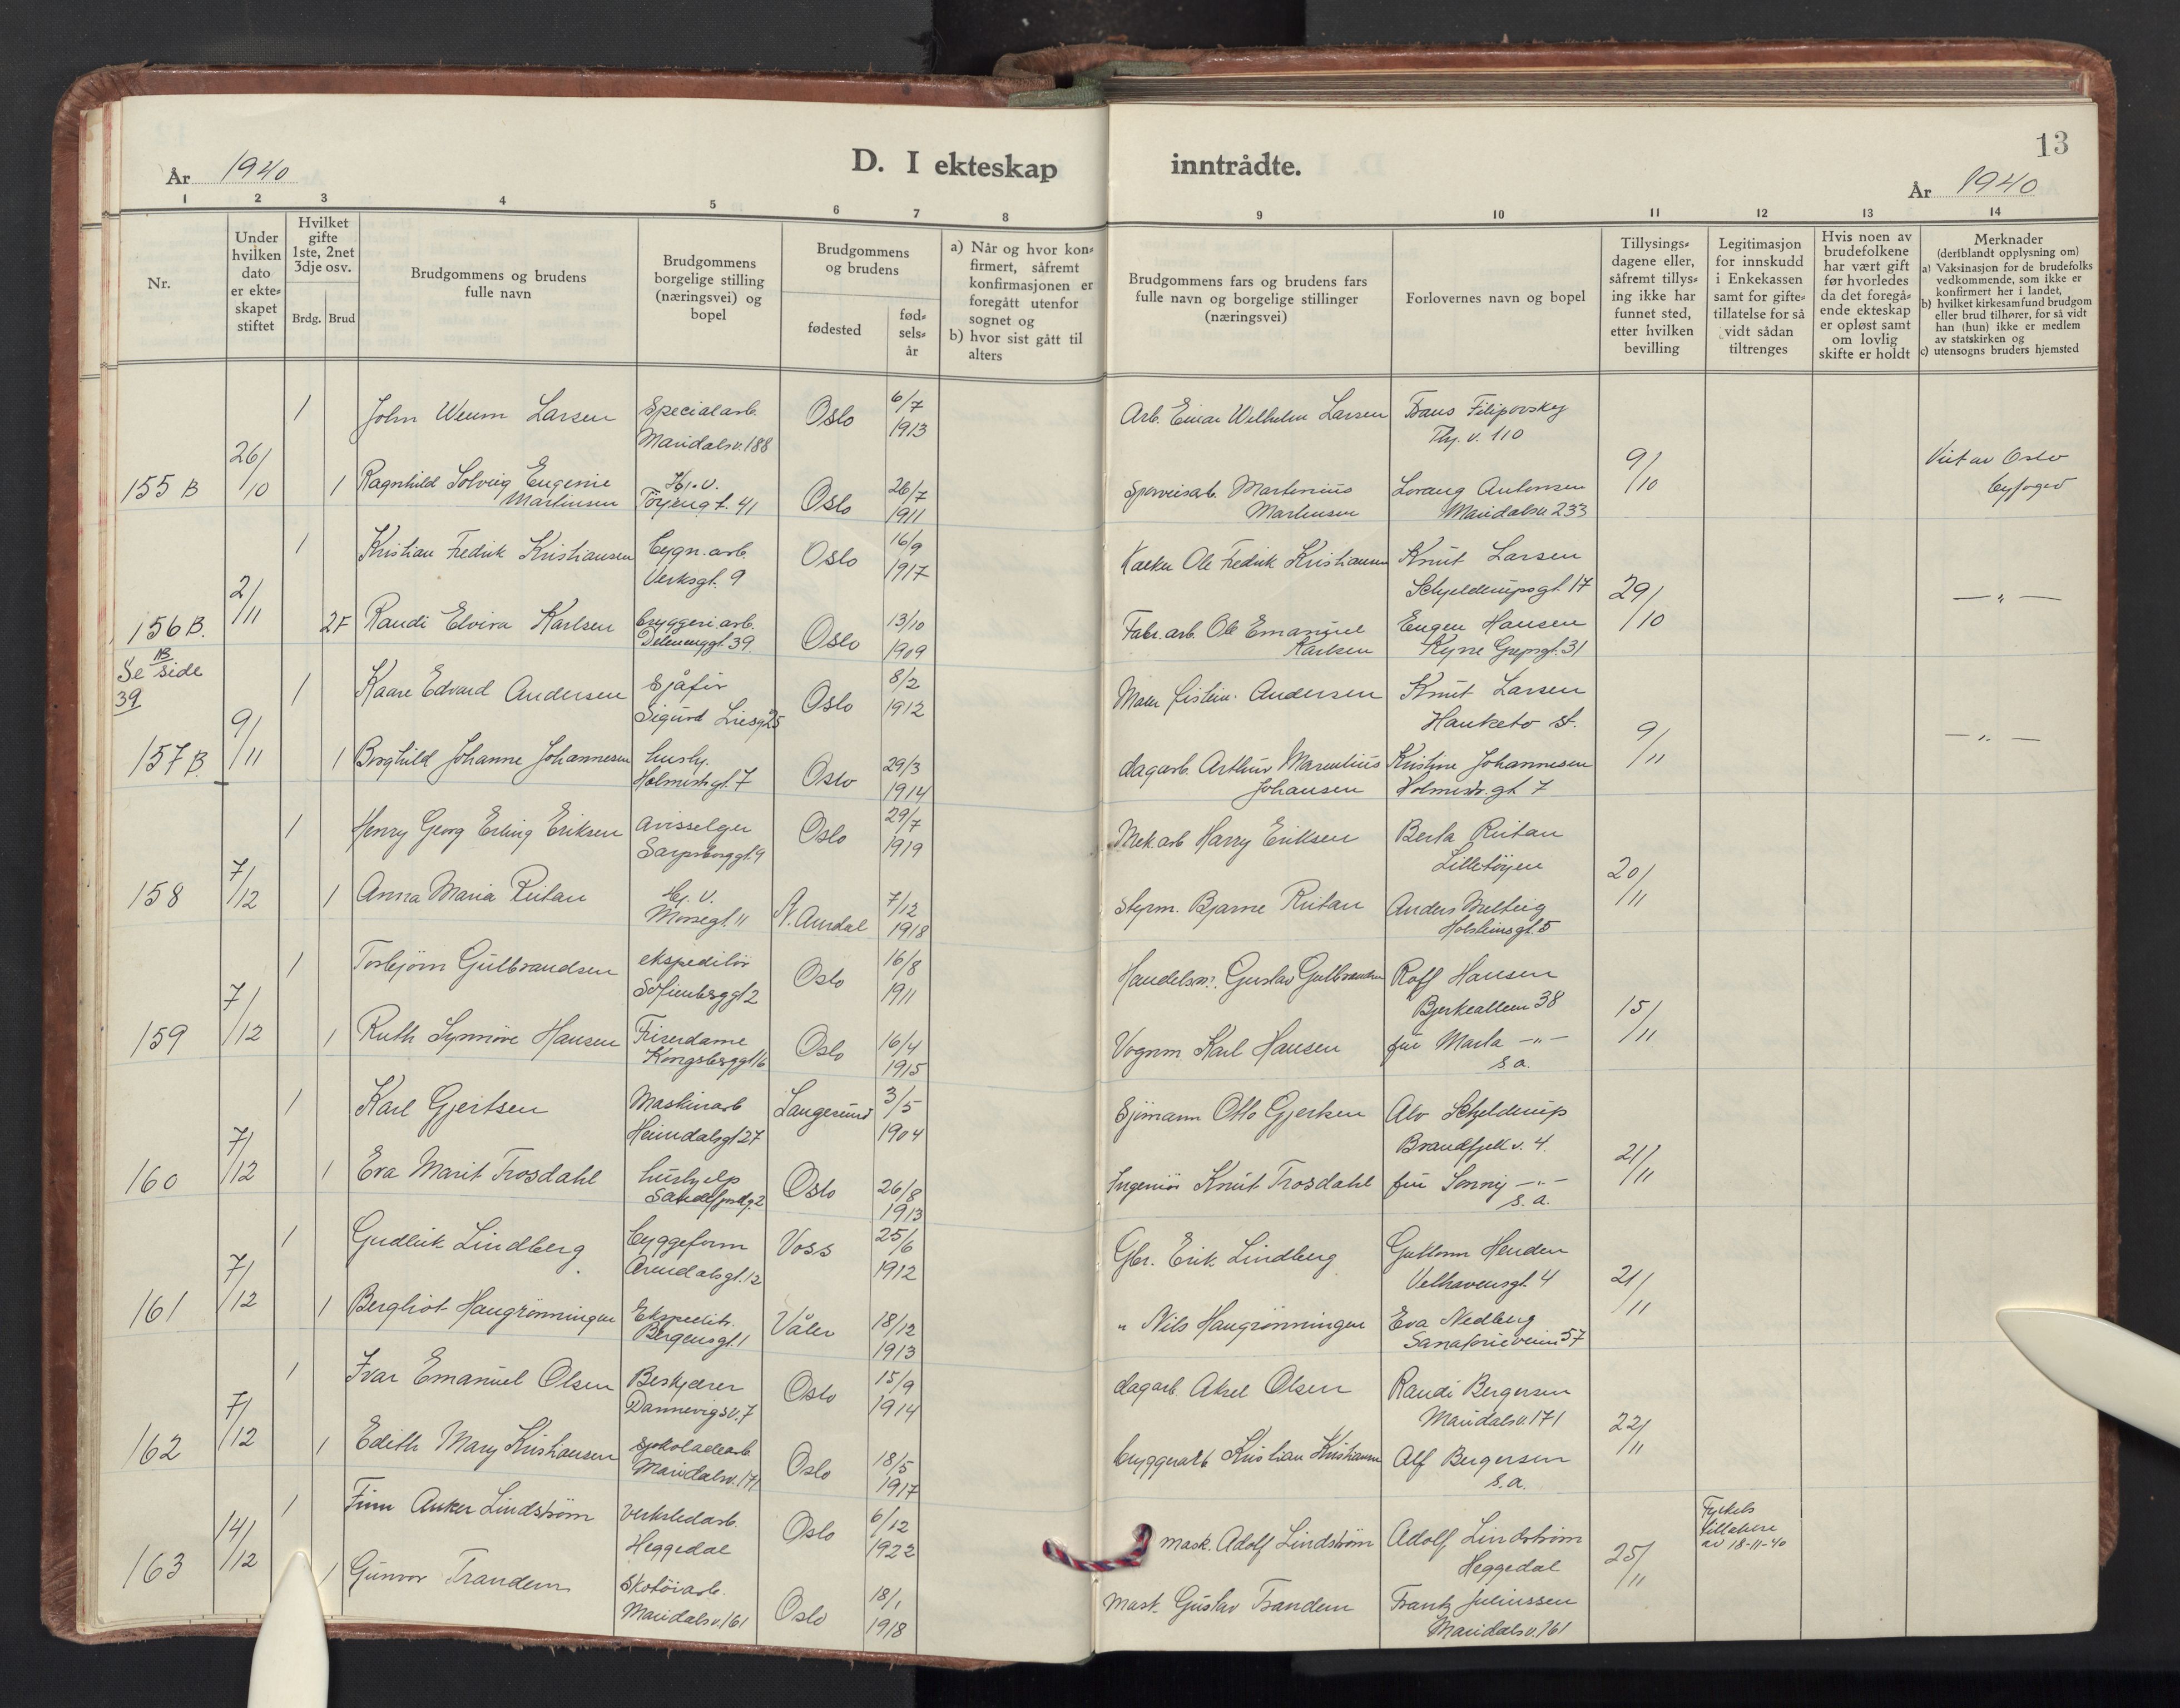 År 1940
D. I ekteskap inntrådte.
13
År 1940
1 2 3 4 5 6 7 8 9 10 11 12 13 14
Nr.
Under hvilken dato er ekte-skapet stiftet
Hvilket gifte 1ste, 2net 3dje osv.
Brdg. Brud
Brudgommens og brudens fulle navn
Brudgommens borgelige stilling (næringsvei) og bopel
Brudgommens og brudens
fødested
fød-sels-år
a) Når og hvor kon-firmert, såfremt konfirmasjonen er foregått utenfor sognet og
b) hvor sist gått til alters
Brudgommens fars og brudens fars fulle navn og borgelige stillinger (næringsvei)
Forlovernes navn og bopel
Tillysings-dagene eller, såfremt tillys-ing ikke har funnet sted, etter hvilken bevilling
Legitimasjon for innskudd i Enkekassen samt for gifte-tillatelse for så vidt sådan tiltrenges
Hvis noen av brudefolkene har vært gift før hvorledes da det foregå-ende ekteskap er opløst samt om lovlig skifte er holdt
Merknader (deriblandt opplysning om)
a) Vaksinasjon for de brudefolks vedkommende, som ikke er konfirmert her i landet,
b) hvilket kirkesamfund brudgom eller brud tilhører, for så vidt han (hun) ikke er medlem av statskirken og
c) utensogns bruders hjemsted
1 John Weum Larsen Specialarb. Oslo 6/7 1913 Arb. Einar Wilhelm Larsen Frans Filipovsky
Maridalsv. 188 Thj. v. 110
155 B 26/10 1 Ragnhild Solveig Eugenie Hj. v. Oslo 26/7 1911 Sporveisarb. Martinius Lorang Antonsen 9/10 Viet av Oslo
Martinsen Töyengt. 41 Martinsen Maridalsv. 233 byfoged
1 Kristian Fredrik Kristiansen bygn. arb. Oslo 16/9 1917 Ole Fredrik Kristiansen Knut Larsen
Verksgt. 9 Schjelderupsgt. 17
156 B. 2/11 2F Randi Elvira Karlsen bryggeri. arb. Oslo 13/10 1909 Fabr. arb. Ole Emanuel Eugen Hansen 29/10 — " —
Delenenggt. 39 Karlsen Kyrre Grepsgt. 31
Se B side
39
1 Kaare Edvard Andersen Sjåfør Oslo 8/2 1912 Maler Andersen Knut Larsen
Sigurd Liesgt. 25 Hauketo st.
157 B. 9/11 1 Borghild Johanne Johannesen hushj. Oslo 29/3 1914 dagarb. Arthur Marentius Kristine Johannesen 9/11 — " —
Holmestr.gt. 7 Johansen Holmestr. gt 7
1 Henry Georg Erling Eriksen avisselger Oslo 29/7 1919 Mek. arb Harry Eriksen Berta Riitan
Sarpsborggt. 9 Lilletöyen
158 7/12 1 Anna Maria Riitan Hj. v. N. Aurdal 7/12 1918 styrm. Bjarne Riitan Anders Melteig 20/11
Mossegt. 11 Holsteinsgt. 5
1 Torbjörn Gulbrandsen ekspeditör Oslo 16/8 1911 Handelsm. Gustav Gulbrandsen Rolf Hansen
Sofienberggt 2 Bjerkealleen 38
159 7/12 1 Ruth Synnöve Hansen Friserdame Oslo 16/4 1915 Vognm Karl Hansen fru Marta — " — 15/11
Kongsberggt 16 s.a.
1 Karl Gjertsen Maskinarb Langesund 3/5 1904 Sjömann Otto Gjertsen Alv Schjelderup
Heimdalsgt 27 Brandfjell v. 4.
160 7/12 1 Eva Marit Trosdahl hushjelp Oslo 26/8 1913 Ingeniör Knut Trosdahl fru Sonnij — " — 21/11
Sandefjordg. 2 s.a.
1 Gudleik Lindberg byggeform Voss 25/6 1912 Gbr. Erik Lindberg Guttorm Henden
Arendalsgt. 12 Velhavensgt. 4
161 7/12 1 Bergliot Haugrönningen Ekspeditr. Våler 18/12 1913 " Nils Haugrönningen Eva Nedberg 21/11
Bergensgt. 1 Sanatorieveien 57
1 Ivar Emanuel Olsen Beskjærer Oslo 15/9 1914 dagarb. Aksel Olsen Randi Bergersen
Dannevigsv. 7 Maridalsv. 171
162 7/12 1 Edith Mary Kristiansen sjokoladearb Oslo 18/5 1917 bryggeriarb Kristian Kristiansen Alf Bergersen 22/11
Maridalsv. 171 s.a.
1 Finn Anker Lindström verkstedarb. Oslo 6/12 1922 Mask. Adolf Lindström Adolf Lindström Fylkets
Heggedal Heggedal tillatelse
av 18-11-40
163 14/12 1 Gunvor Trandem Skotöiarb. Oslo 18/1 1918 Mask. Gustav Trandem Frantz Juliussen 25/11
Maridalsv. 161 Maridalsv. 161